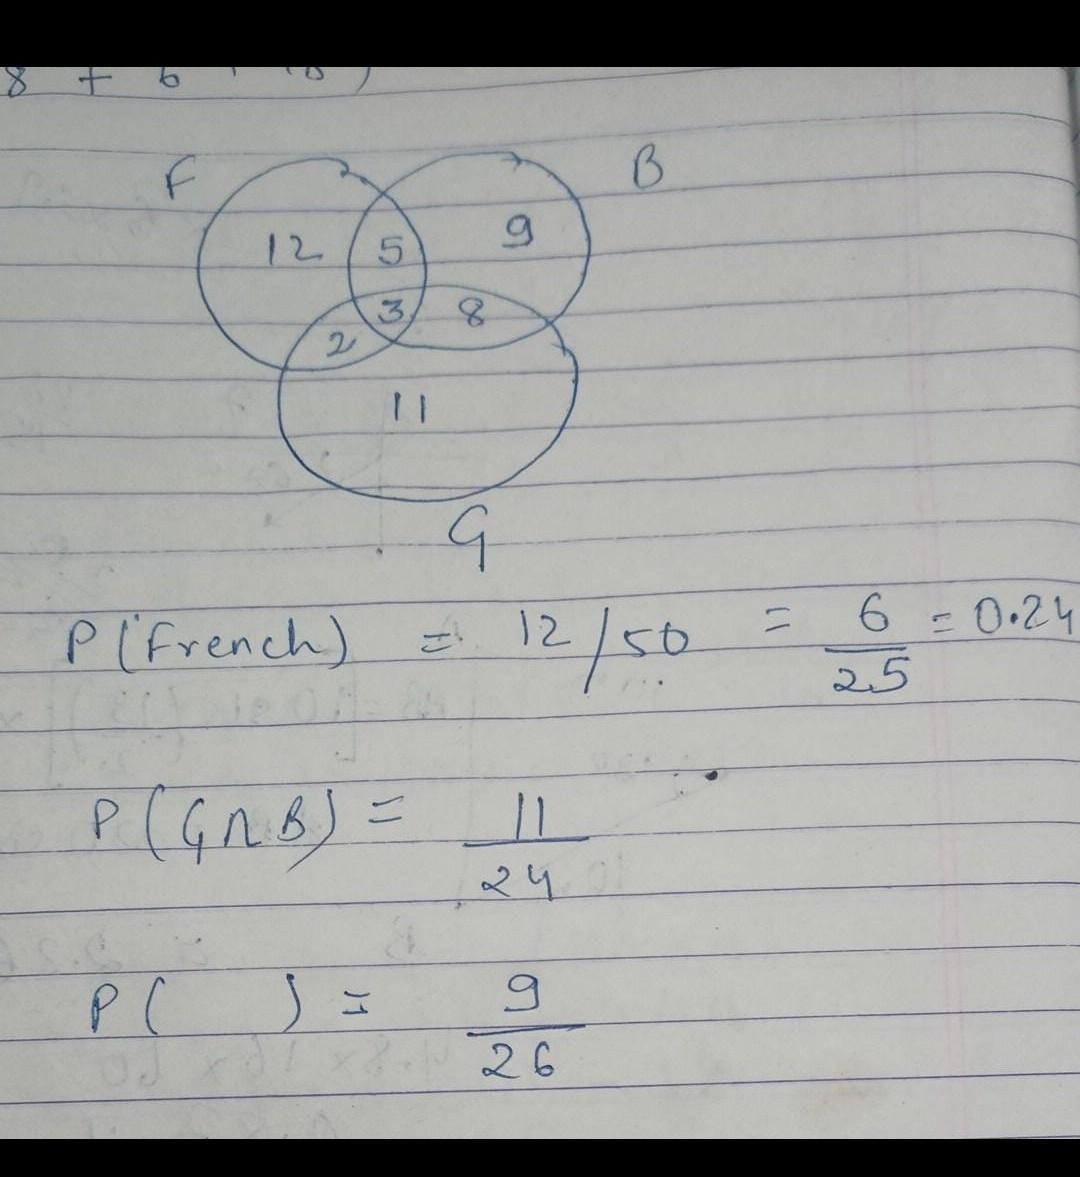 8 + 6
F B
12 5 9
3 8
2
11
G
P(French) = 12/50 = 6/25 = 0.24
P(G∩B) = 11/24
P( ) = 9/26